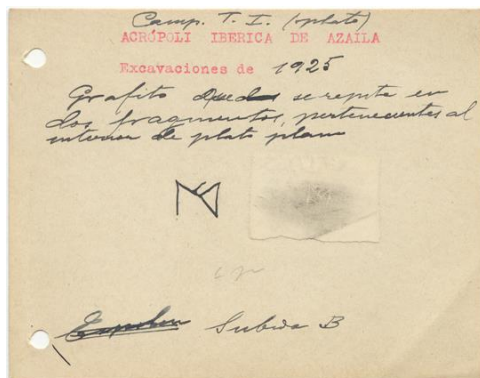 Camp. T. I. (plato)
ACRÓPOLI IBERICA DE AZAILA
Excavaciones de 1925
Grafito que se repite en
dos fragmentos, pertenecientes al
interior de plato plano
Subida B